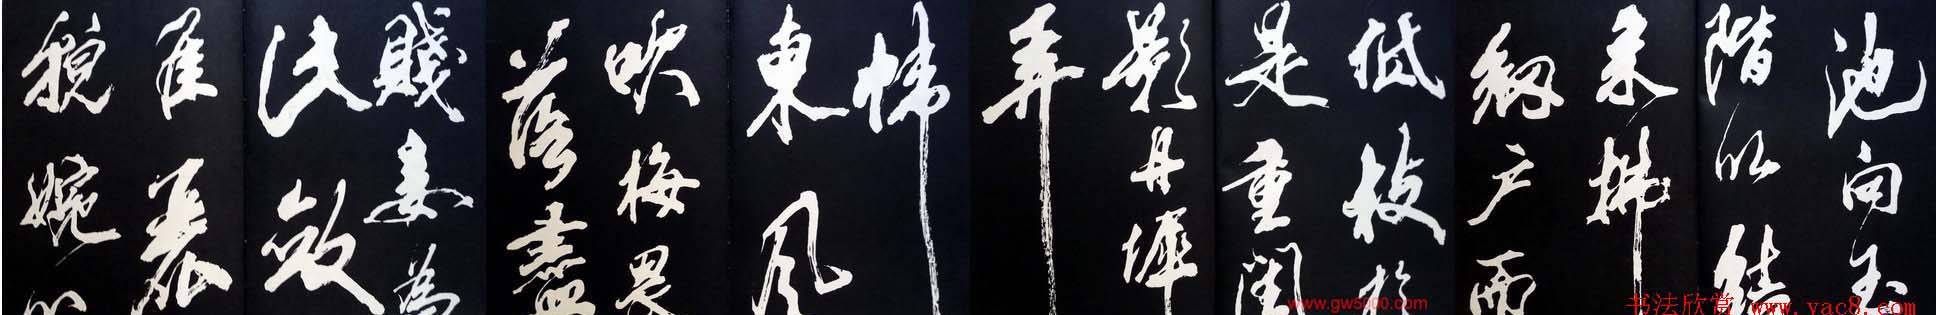 池向玉
階以結
采拂
網户而
低枝於
是重閨
影丹墀
弄
帷
東風
吹梅畏
落盡
賤妾為
此斂
佳麗
貌婉心
www.gw5000.com
书法欣赏 www.yac8.com